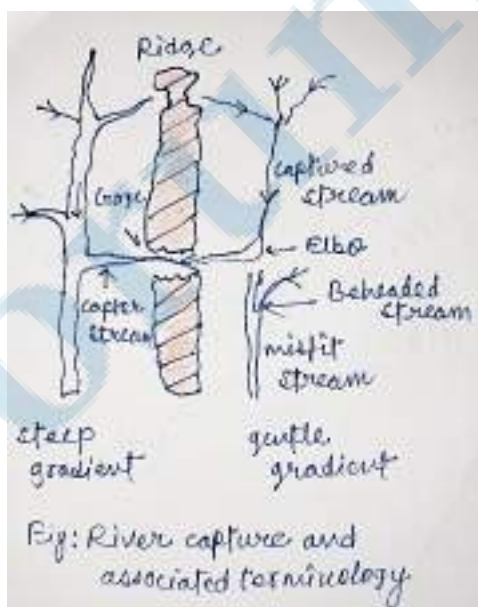 Ridge
captured
stream
Gorge
Elbo
capter
stream
Beheaded
stream
misfit
stream
steep
gradient
gentle
gradient
Fig: River capture and
associated terminology